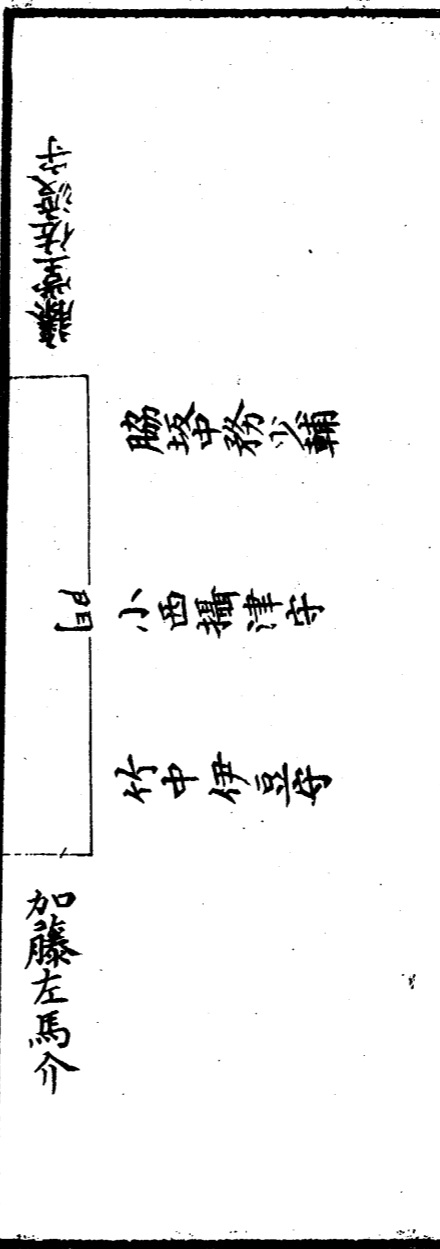 藤堂佐渡守
脇坂中務少輔
門
小西攝津守
竹中伊豆守
加藤左馬介